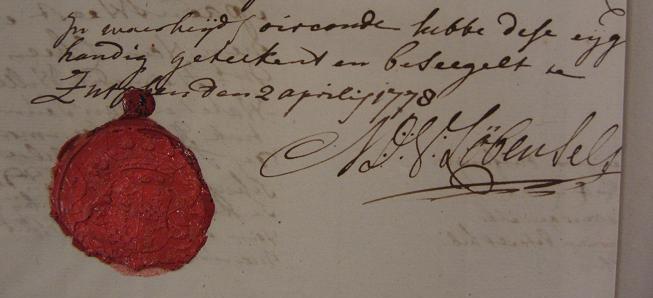 In waerheijds oirconde hebbe dese eijg
handig geteekent en beseegelt te
Zutphen den 2 aprilij 1778